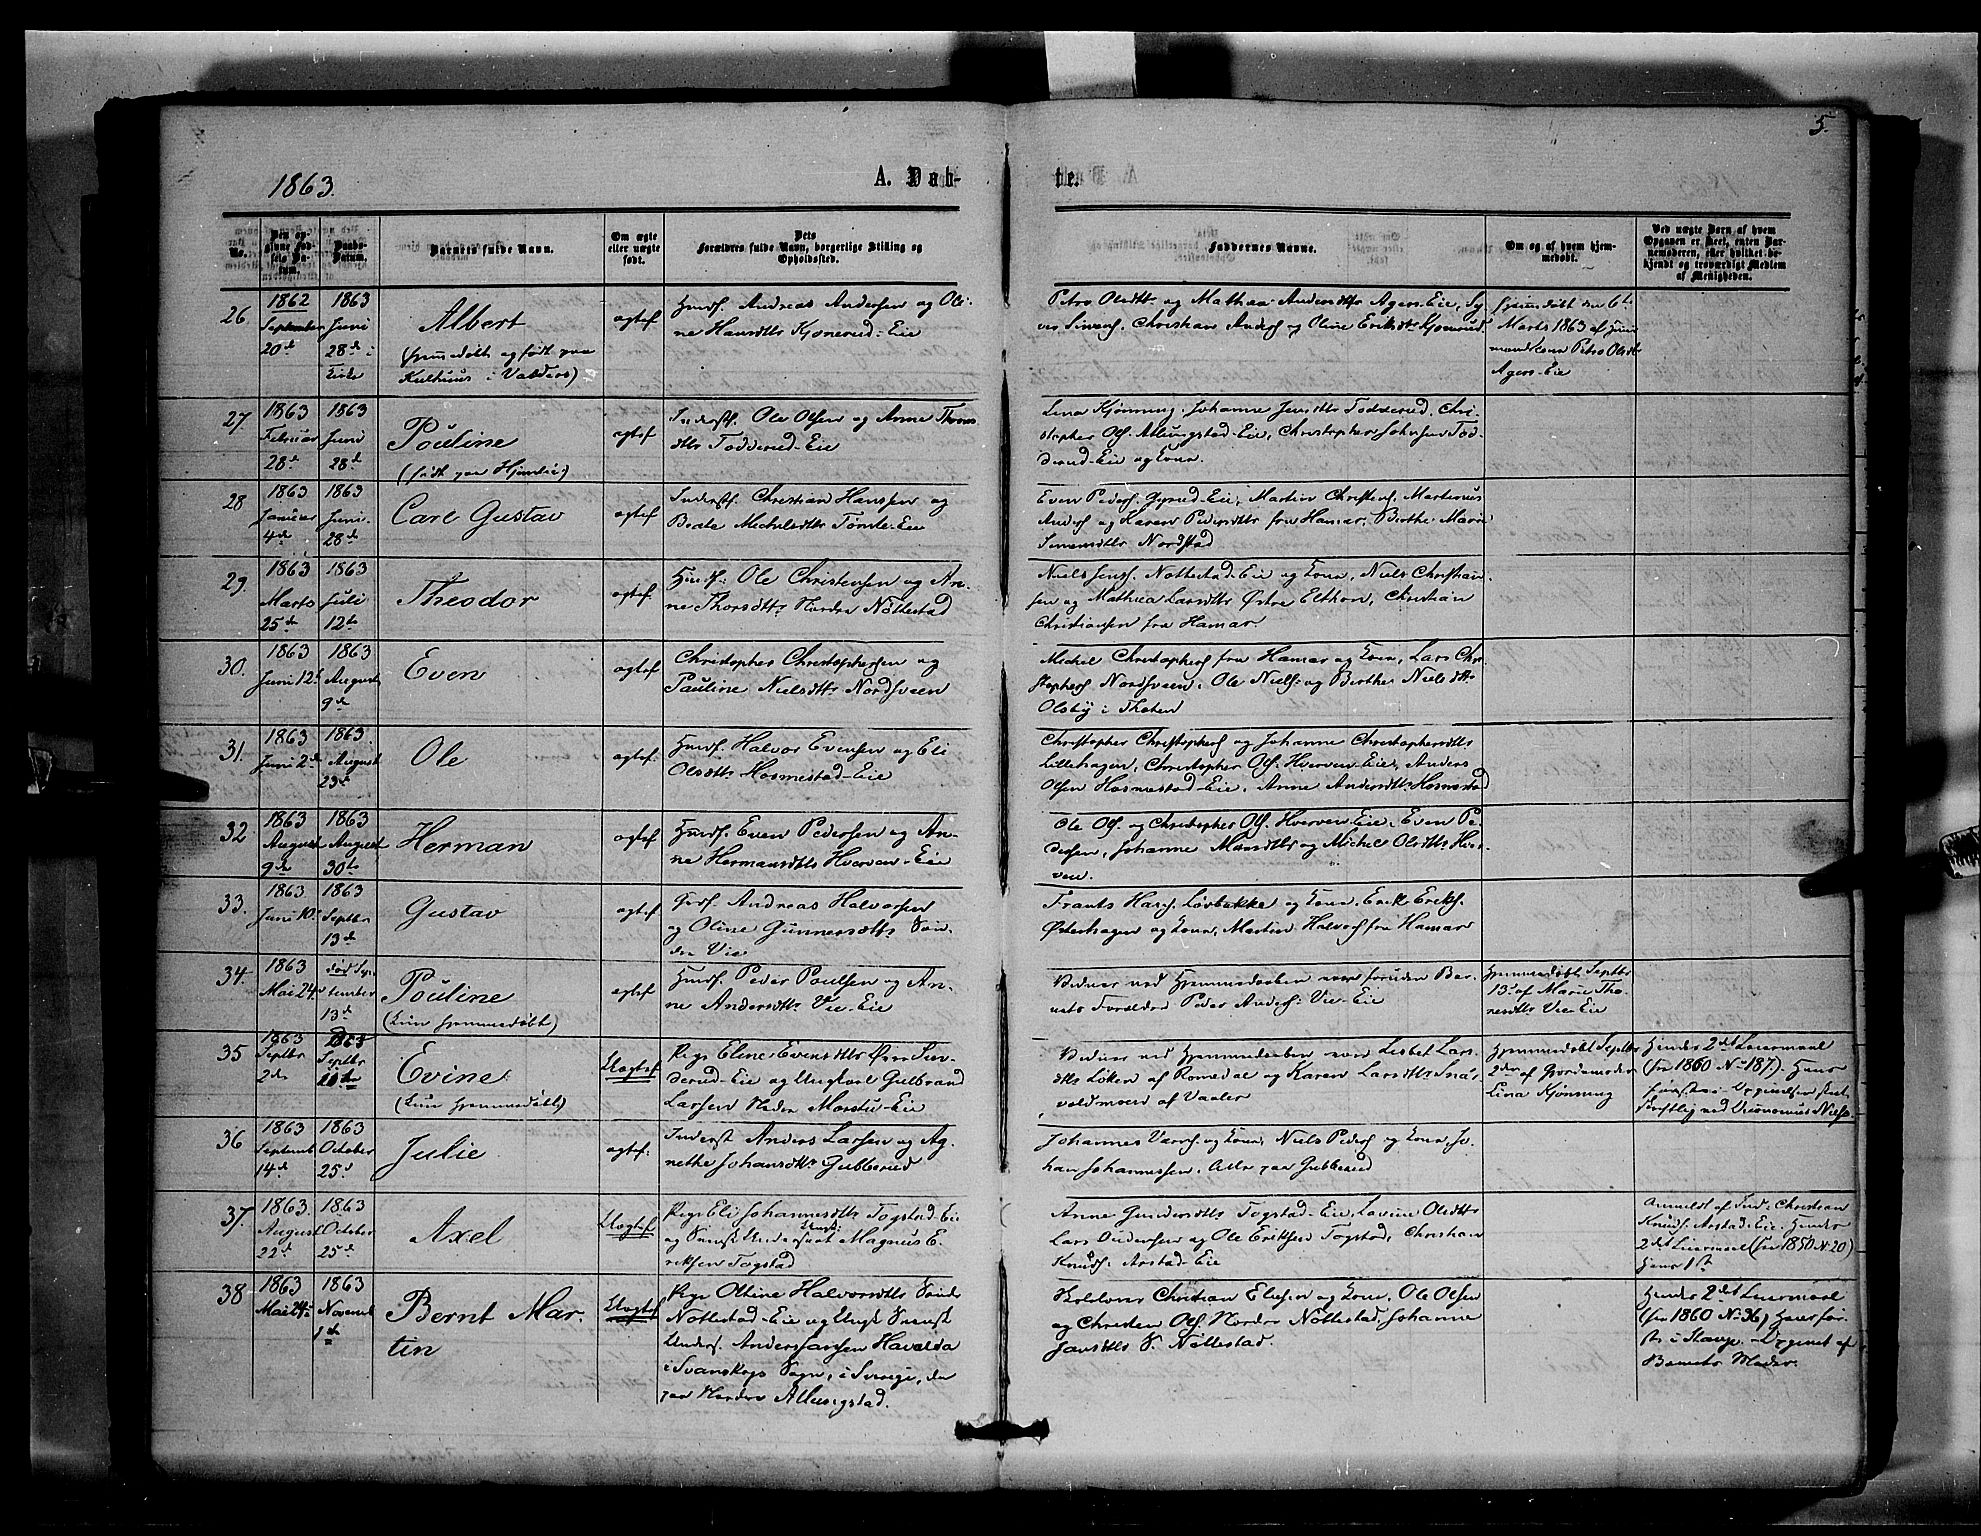 5.
1863.
A. Døb-
te.
No.
Den op-
givne Fød-
sels Da-
tum.
Daabs-
Datum.
Barnets fulde Navn.
Om ægte
eller uægte
født.
Dets
Forældres fulde Navn, borgerlige Stilling og
Opholdssted.
Faddernes Navne.
Om og af hvem hjem-
medøbt.
Ved uægte Børn af hvem
Opgaven er skeet, enten Bar-
nemoderen, eller hvilket be-
kjendt og troværdigt Medlem
af Menigheden.
26.
1862
September
20de
1863
Juni
28de i
Kirke
Albert
(hjemmedøbt og født paa
i Valders)
ægtef.
Andreas Andersen og Oli-
ne Hansdttr Kjonerud-Eie
Petra Olsdttr og Mathea Andersdttr Agers-Eie, Sy-
Christian Anders. og Oline Eriksdttr Kjonerud
Hjemdøbt den 6te
Marts 1863 af Huus-
mandskone Petra Olsdt.
Agers-Eie
27.
1863
Februar
28de
1863
Juni
28de
Pouline
(født paa
ægtef.
Inderst. Ole Olsen og Anne Thorers
dttr Todderud-Eie
Lina Kjønning, Johanne Jensdttr Todderud, Chri-
stopher Ols. Allungstad-Eie, Christopher Johnsen Tod-
derud-Eie og Kone.
28
1863
Januar
4de
1863
Juni.
28de
Carl Gustav
ægtef.
Inderst. Christian Hansen og
Beate Michelsdttr Tomte-Eie
Even Peders. Gyrud-Eie, Martin Christens. Martinus
Anders. og Karen Pedersdttr fra Hamar, Berthe Marie
Simensdttr Nordstad
29.
1863
Marts
25de
1863
Juli
12te
Theodor
ægtef.
Huusf. Ole Christensen og An-
ne Thorsdttr Nordre Nøttestad
Niels Jens. Nøttestad-Eie og Kone, Niels Christian-
sen og Mathea Larsdttr Østre Elthon, Christian
Christiansen fra Hamar.
30.
1863
Juni 12te
1863
August
9de
Even
ægtef.
Christopher Christophersen og
Pauline Nielsdttr Nordsveen
Michel Christophers. fra Hamar og Kone, Lars Chri-
stophers. Nordsveen, Ole Niels. og Berthe Nielsdttr
Olsby i Thoten
31.
1863
Juni 2de
1863.
August
23de
Ole
ægtef.
Huusf. Halvor Evensen og Eli
Olsdttr Hosmestad-Eie
Christopher Christophers. og Johanne Christophersdttr
Lillehagen, Christopher Ols. Hverven-Eie, Anders
Olsen Hosmestad-Eie, Anne Andersdttr Hosmestad
32
1863
August
9de
1863
August
30te
Herman
ægtef.
Huusf. Even Pedersen og An-
ne Hermansdttr Hverven-Eie
Ole Ols. og Christopher Ols. Hverven-Eie, Even Pe-
dersen, Johanne Monsdttr og Michel Olsdttr Hver-
ven.
33.
1863
Juni 10.
1863
Septbr
13de
Gustav
ægtef.
Andreas Halvorsen
og Oline Gunnersdttr Søn-
dre Vie
Frants Hans. Løvbakke og Kone, Erik Eriks.
Østerhagen og Kone, Martin Halvors. fra Hamar
34.
1863
Mai 24.
død Sep-
tember
13de
Pouline
(kun hjemmedøbt)
ægtef.
Huusf. Peder Poulsen og An-
ne Andersdttr Vie-Eie
Vidner ved Hjemmedaaben var foruden Bar-
nets Forældre Peder Anders. Vie-Eie
Hjemmedøbt Septbr
13de af Marie Tho-
resdttr Vie-Eie
35
1863
Septbr
2de
1863
Septbr
Evine
(kun hjemmedøbt)
Uægtef.
Pige Eline Evensdttr Øvre
derud-Eie og Ungkarl Gulbrand
Larsen Nedre Morstu-Eie
Vidner ved Hjemmedaaben var Lisbet Lars-
dttr Løken af Romedal og Karen Larsdttr
voldmoen af Vaaler
Hjemmedøbt Septbr
2den af Jordemoder
Lina Kjønning
Hendes 2det Leiermaal
(fra 1860 No 187).
36
1863
Septemb.
14de
1863
October
25de
Julie
ægtef.
Inderst Anders Larsen og Ag-
nethe Johansdttr Gubberud
Johannes og Kone, Niels Peders. og Kone, Jo-
han Johannessen. Alle paa Gubberud
37.
1863.
August
22de
1863
October
25de
Axel
Uægtef.
Pige Eli Johannesdttr Togstad-Eie
og Svensk Undersaat Magnus E-
riksen Togstad
Anne Gundersdttr Togstad-Eie, Lovise Olsdttr
Lars Andersen og Ole Eriksen Togstad, Christian
Knuds. Arstad-Eie
Anmeldt af Ind. Christian
Knuds. Arstad-Eie. Hendes
2det Leiermaal (fra 1850 No 20)
Hans 1ste
38.
1863
Mai 24.
1863
Novemb.
1ste
Bernt Mar-
tin
Uægtef.
Pige Oltine Halvorsdttr Søndre
Nøttestad-Eie og Ungk. Svensk
Unders. Anders Jansen Havalda
i Svanskogs Sogn, i Sverige, nu
paa Nordre Allungstad.
Christian Eliesen og Kone, Ole Olsen
og Christen Ols. Nordre Nøttestad. Johanne
Jansdttr S. Nøttestad.
Hendes 2det Leiermaal
(fra 1860 No 36) Hans før-
ste i Stange. Opgivet af
Barnets Moder.